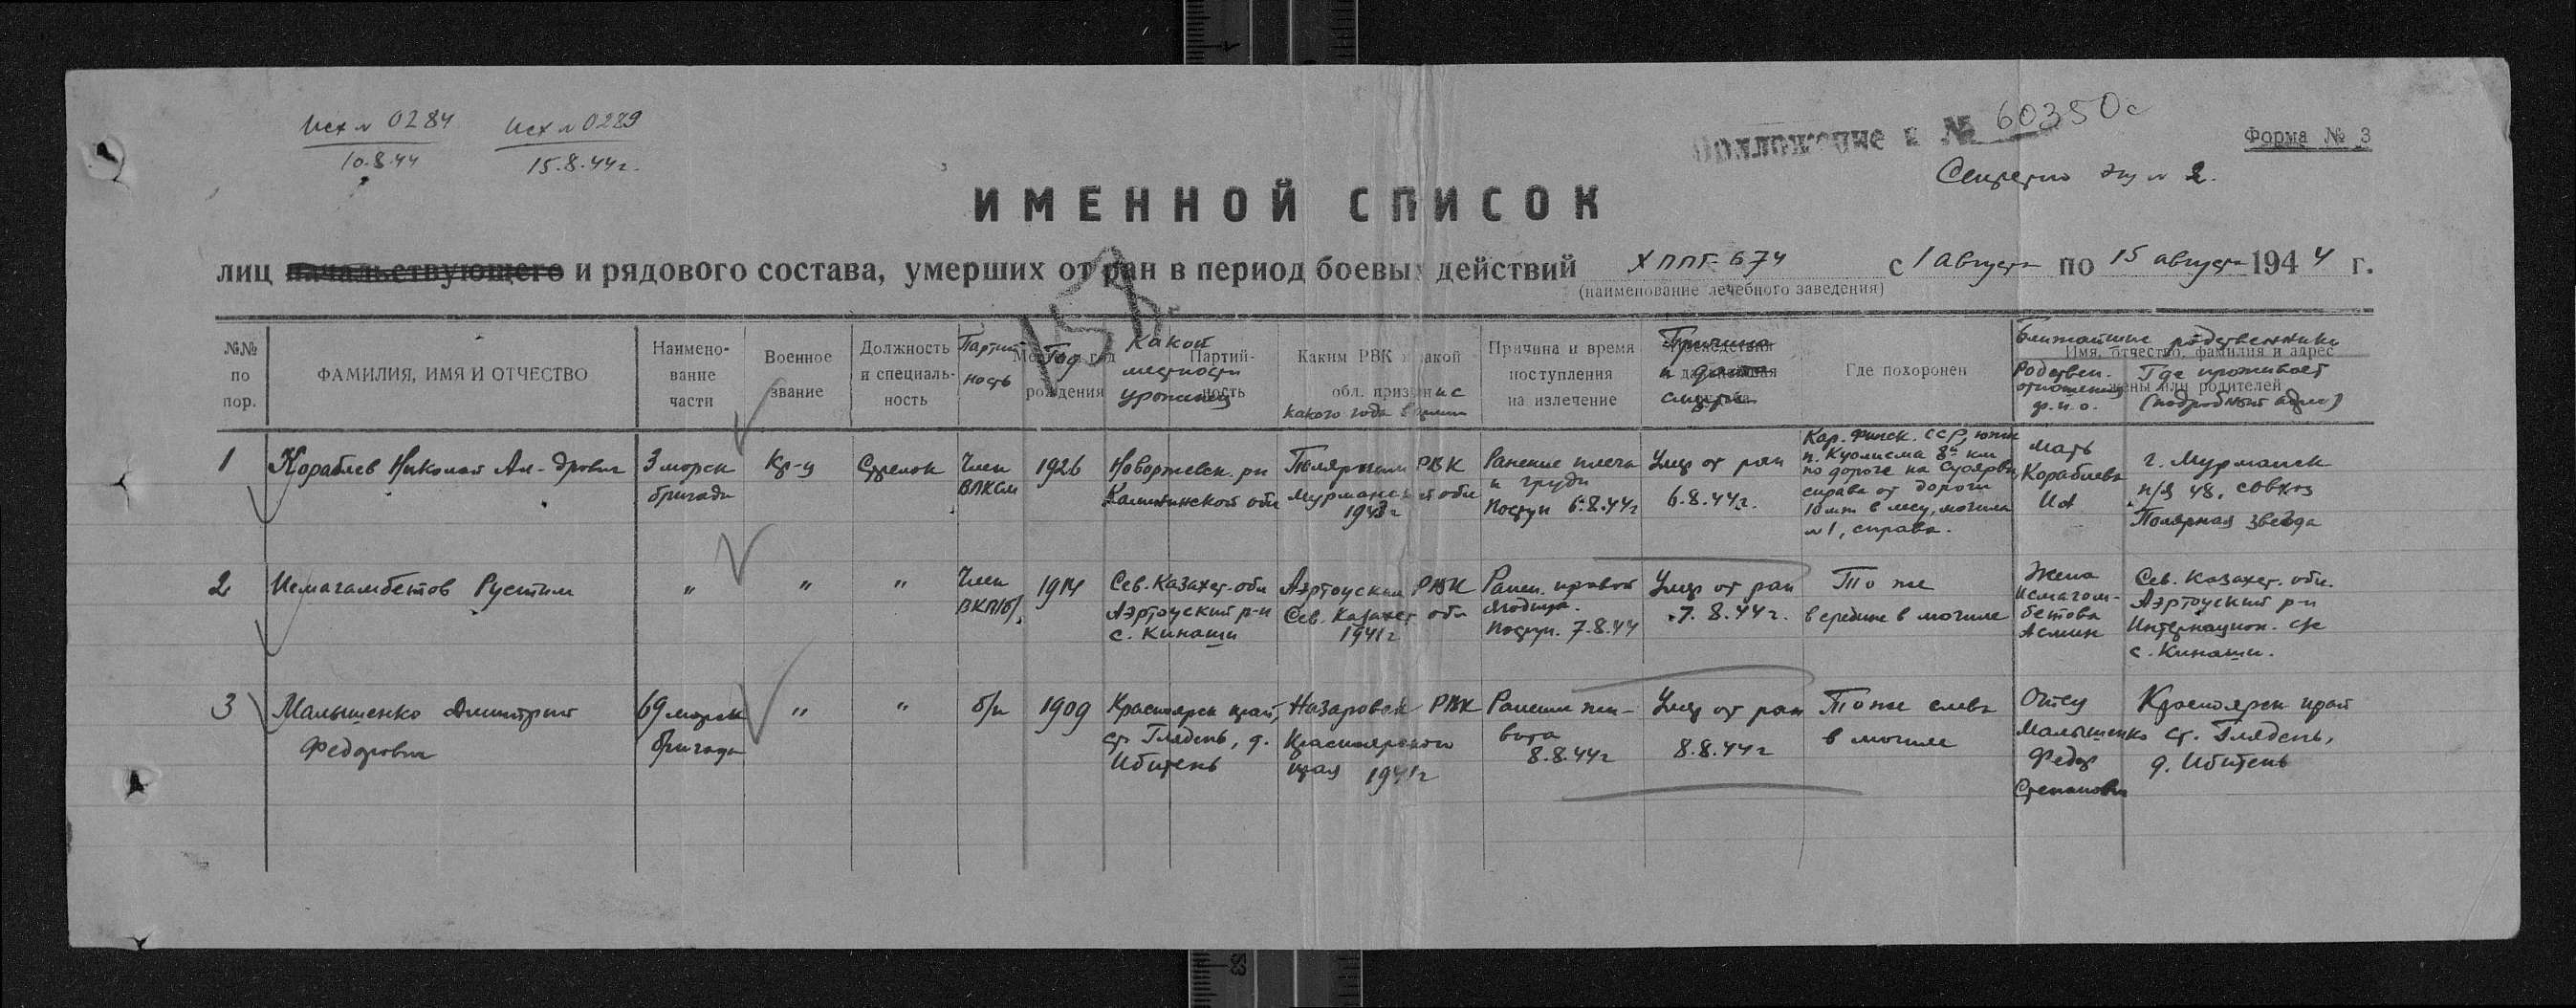 Исх N 0284
10.8.44
Исх N 0289
15.8.44г.
Приложение к № 60350с
Форма № 3
Секретно экз N 2.
ИМЕННОЙ СПИСОК
лиц начальствующего и рядового состава, умерших от ран в период боевых действий ХППГ 674 с 1 августа по 15 августа 1944 г.
(наименование лечебного заведения)
№№ по пор.
ФАМИЛИЯ, ИМЯ И ОТЧЕСТВО
Наимено-
вание
части
Военное
звание
Должность
и специаль-
ность
Партий
ность
Год
рождения
Какой
местности
уроженец
Партий-
ность
Каким РВК и какой
обл. призван и с
какого года в армии
Причина и время
поступления
на излечение
Причина
и дата
смерти
Где похоронен
Ближайшие родственники
Имя, отчество, фамилия и адрес
жены или родителей
Родствен.
отношения
ф.и.о.
Где проживает
(подробный адрес)
1
Кораблев Николай Ал-дрович
3 морск
бригады
Кр-ц
Стрелок
Член
ВЛКСМ
1926
Новоржевск. р-н
Калининской обл
Полярным РВК
Мурманской обл
1943г
Ранение плеча
и груди
поступ 6.8.44г
Умер от ран
6.8.44г.
Кар. Финск. ССР, южн
п. Куолисма 8й км
по дороге на Суоярви,
справа от дороги
10 мт в лесу, могила
N 1, справа.
Мать
Кораблева
г. Мурманск
п/я 48, совхоз
Полярная звезда
2
Исмагамбетов Рустим
"
"
"
Член
ВКП/б/.
1914
Сев. Казахст. обл
Аэртоуский р-н
с. Кинаши
Аэртоуским РВК
Сев. Казахст обл
1941г
Ранен. правой
ягодицы.
поступ. 7.8.44
Умер от ран
7.8.44г.
То же
в середине в могиле
Жена
Исмагам-
бетова
Асмин
Сев. Казахст. обл.
Аэртоуский р-н
Интернацион. с/с
с. Кинаши.
3
Малышенко Дмитрий
Федорович
69 морск
бригада
"
"
б/п
1909
Красноярск край,
ст Глядень, д.
Ибитень
Назаровск РВК
Красноярского
края 1941г
Ранение жи-
вота
8.8.44г
Умер от ран
8.8.44г
То же слева
в могиле
Отец
Малышенко
Федор
Степанович
Красноярск край
ст. Глядень,
д. Ибитень